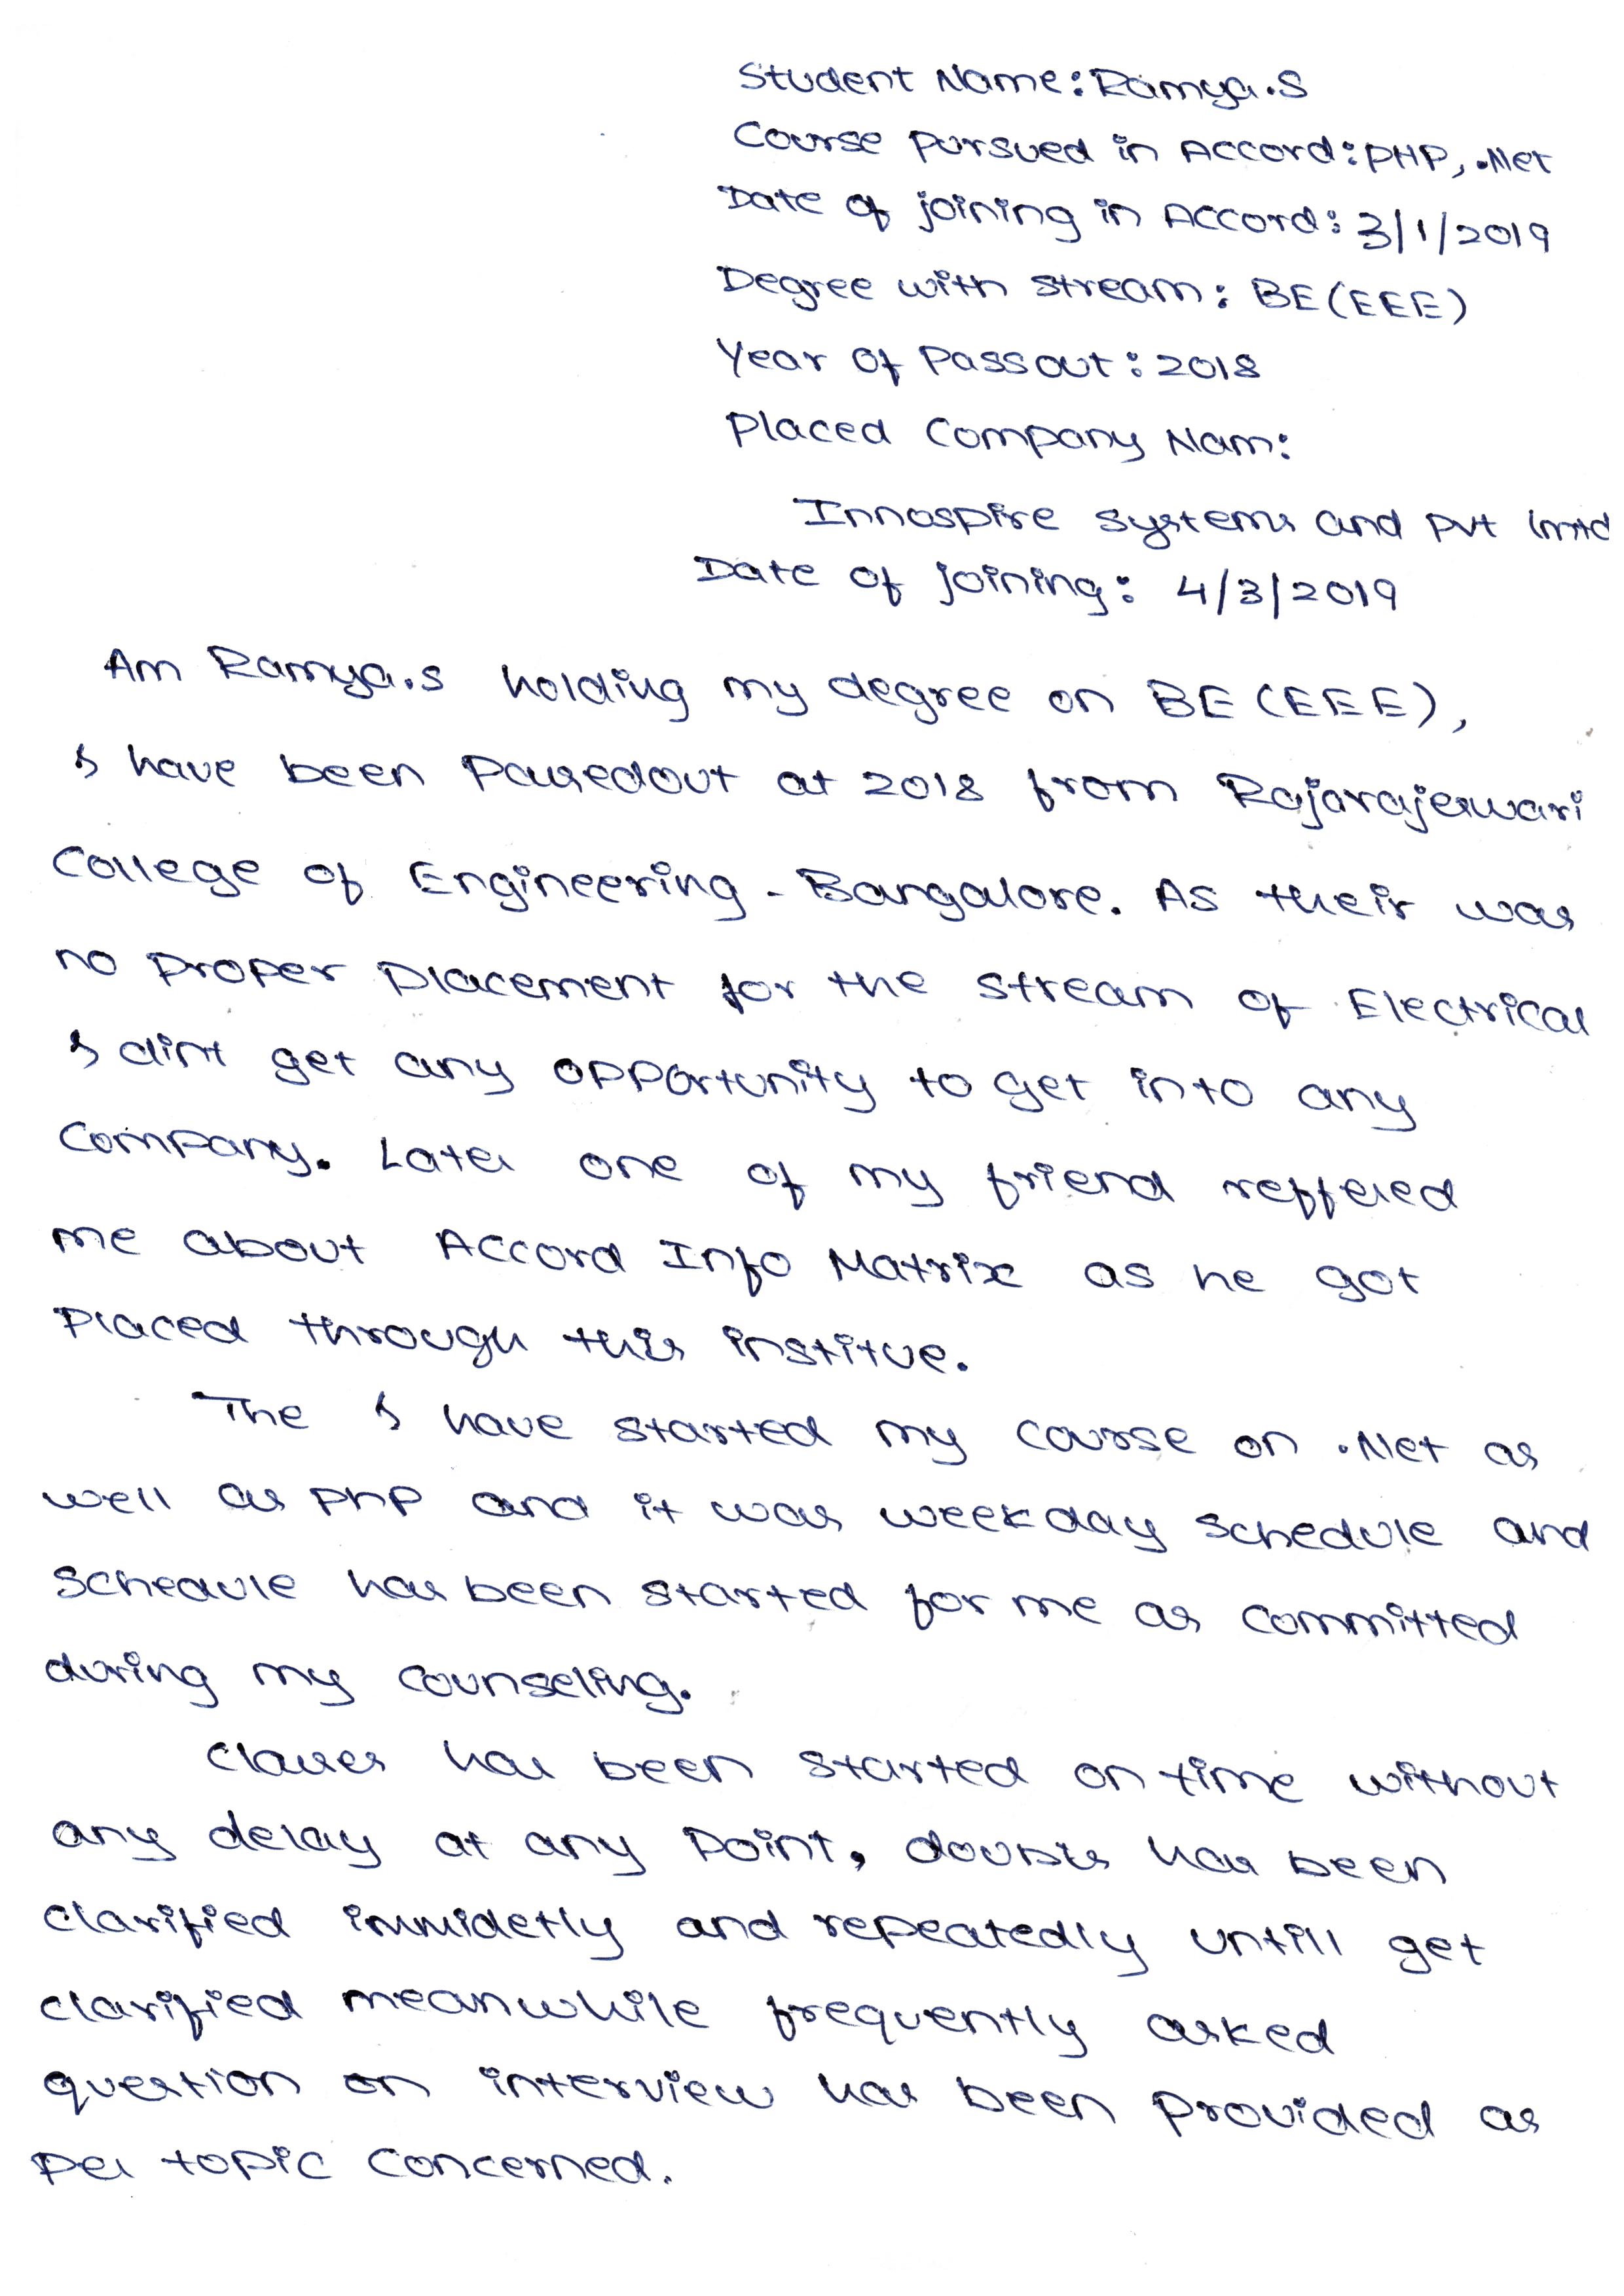 Student Name: Ramya.S
Course pursued in Accord: PHP, .Net
Date of joining in Accord: 3/1/2019
Degree with stream: BE(EEE)
Year of Passout: 2018
Placed Company Nam:
Innospire systems and pvt lmtd
Date of joining: 4/3/2019
Am Ramya.s holding my degree on BE (EEE),
I have been Passedout at 2018 from Rajarajeswari
College of Engineering - Bangalore. As their was
no proper placement for the stream of Electrical
I dint get any opportunity to get into any
Company. Later one of my friend reffered
me about Accord Info Matrix as he got
Placed through this institue.
The I have started my course on .Net as
well as php and it was weekday schedule and
schedule has been started for me as committed
during my counseling.
classes has been started on time without
any delay at any point, doubts has been
clarified immidetly and repeatedly untill get
clarified meanwhile frequently asked
question on interview has been provided as
per topic concerned.